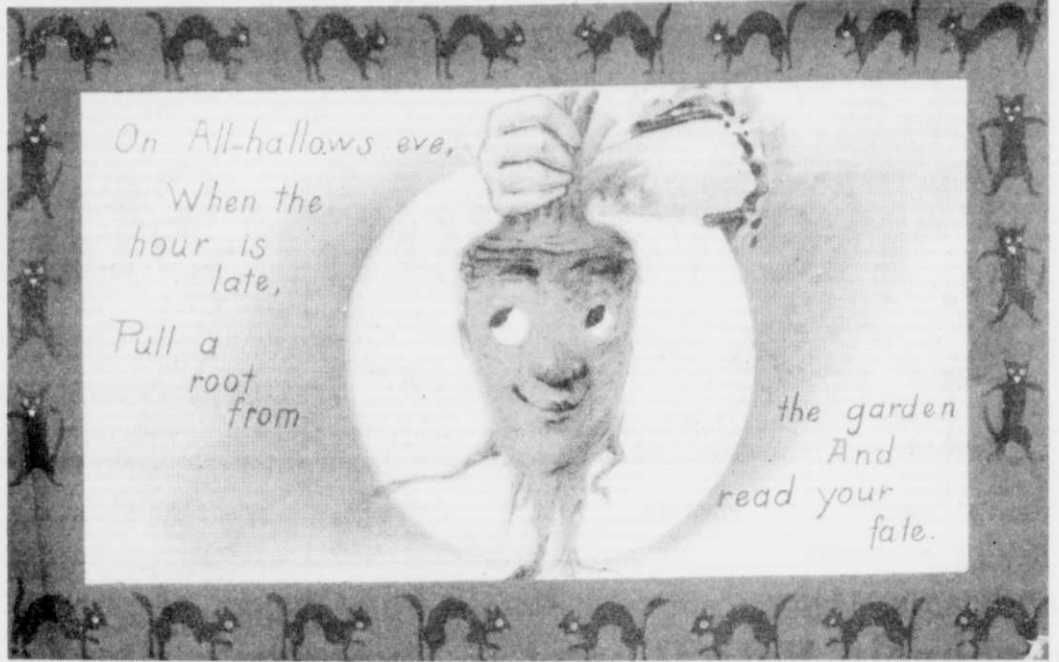 On All-hallows eve,
When the
hour is
late,
Pull a
root
from
the garden
And
read your
fate.